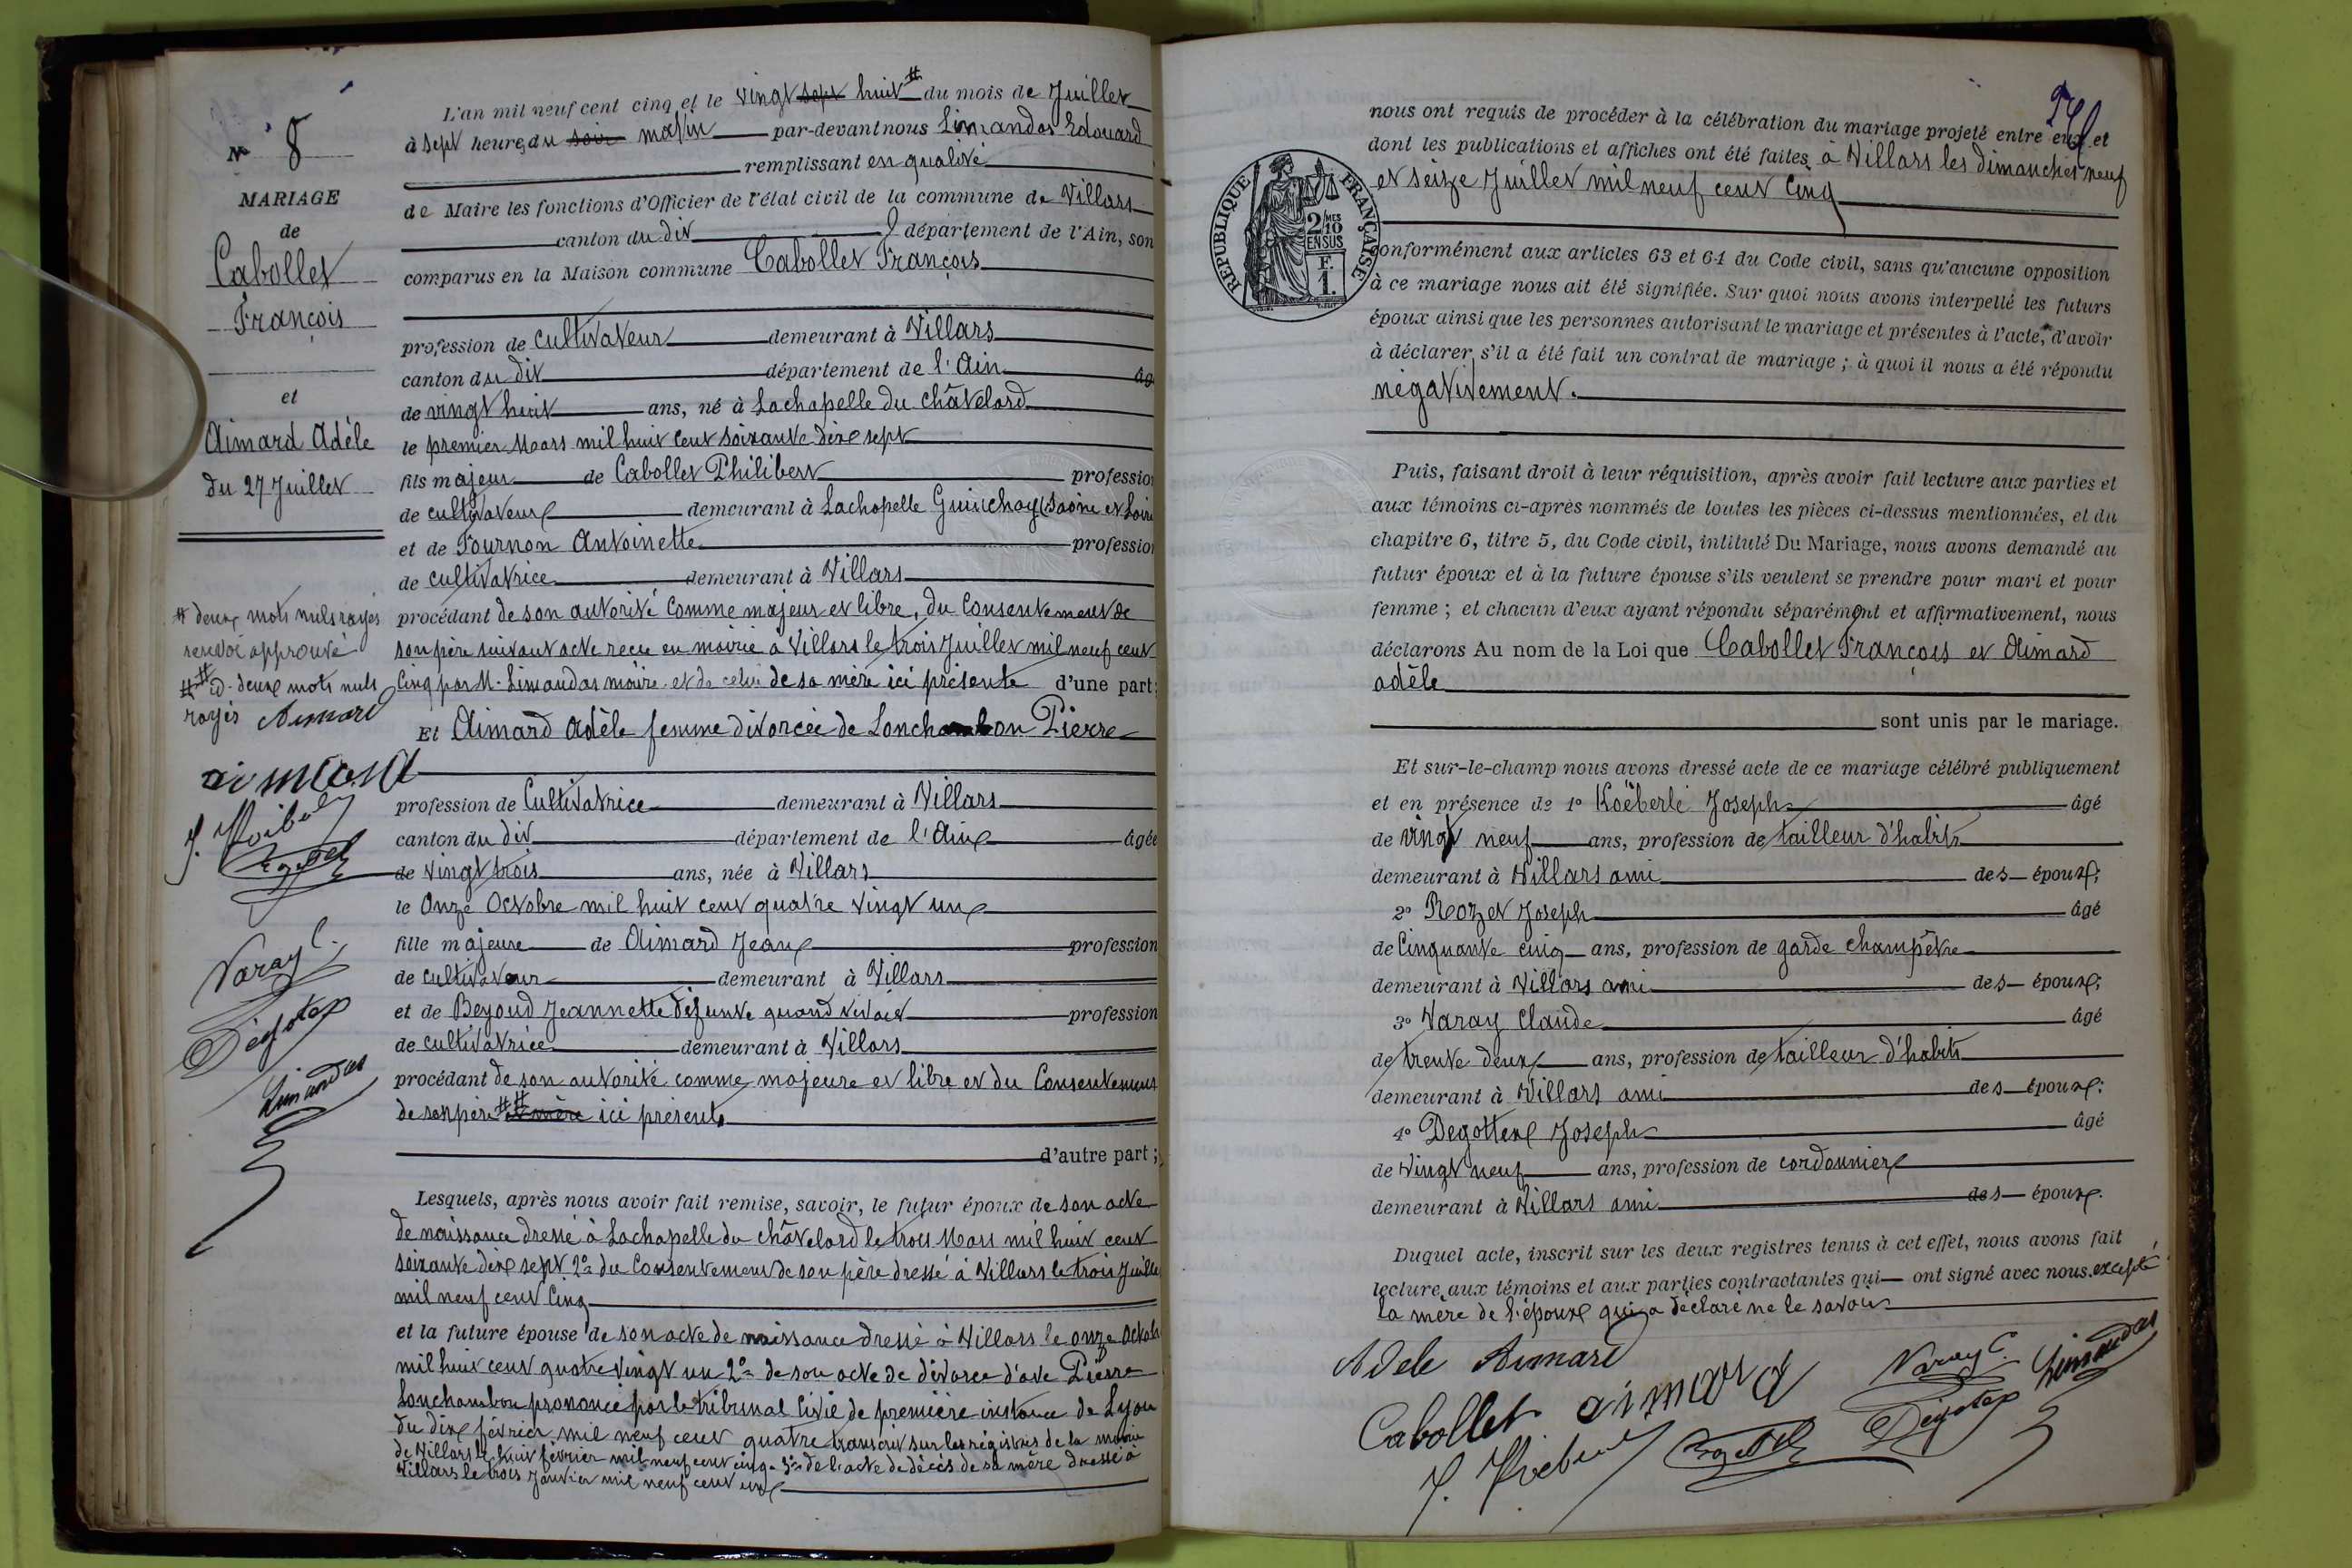 N° 8
MARIAGE
de
Cabollet
François
et
Aimard Adèle
du 27 Juillet
# deux mots nuls rayés
renvoi approuvé
## id. deux mots nuls
rayés Aimard
aimard
Varay C.
Degotex
Limandas
L'an mil neuf cent cinq et le vingt sept huit # du mois de Juillet
à sept heures du soir matin par-devant nous Limandas Edouard
remplissant en qualité
de Maire les fonctions d'Officier de l'état civil de la commune de Villars
canton du dit département de l'Ain, son
comparus en la Maison commune Cabollet François
profession de cultivateur demeurant à Villars
canton du dit département de l'Ain âg
de vingt huit ans, né à Lachapelle du Châtelard
le premier Mars mil huit cent soixante dix sept
fils majeur de Cabollet Philibert profession
de cultivateur demeurant à Lachapelle Guinchay (Saône et Loire
et de Fournon Antoinette profession
de cultivatrice demeurant à Villars
procédant de son autorité comme majeur et libre, du consentement de
son père suivant acte recu en mairie à Villars le trois Juillet mil neuf cent
cinq par M. Limandas maire et de celui de sa mère ici présente d'une part;
Et Aimard Adèle femme divorcée de Lonchambon Pierre
profession de Cultivatrice demeurant à Villars
canton du dit département de l'Ain âgée
de vingt trois ans, née à Villars
le Onze Octobre mil huit cent quatre vingt un
fille majeure de Aimard Jean profession
de cultivateur demeurant à Villars
et de Beyoud Jeannette défunte quand vivait profession
de cultivatrice demeurant à Villars
procédant de son autorité comme majeure et libre et du Consentement
de son père ## et mère ici présent
d'autre part;
Lesquels, après nous avoir fait remise, savoir, le futur époux de son acte
de naissance dressé à Lachapelle du Châtelard le trois Mars mil huit cent
soixante dix sept 2° du Consentement de son père dressé à Villars le trois Juillet
mil neuf cent cinq
et la future épouse de son acte de naissance dressé à Villars le onze Octobre
mil huit cent quatre vingt un 2° de son acte de divorce d'avec Pierre
Lonchambon prononcé par le tribunal civil de première instance de Lyon
du dix février mil neuf cent quatre transcrit sur les régistres de la mairie
de Villars le huit février mil neuf cent cinq. 3° de l'acte de décès de sa mère dressé à
Villars le trois Janvier mil neuf cent un
nous ont requis de procéder à la célébration du mariage projeté entre eux et
dont les publications et affiches ont été faites à Villars les dimanches neuf
et seize Juillet mil neuf cent cinq
RÉPUBLIQUE FRANÇAISE
2/10 MES
EN SUS
F.
1.
conformément aux articles 63 et 64 du Code civil, sans qu'aucune opposition
à ce mariage nous ait été signifiée. Sur quoi nous avons interpellé les futurs
époux ainsi que les personnes autorisant le mariage et présentes à l'acte, d'avoir
à déclarer s'il a été fait un contrat de mariage; à quoi il nous a été répondu
négativement.
Puis, faisant droit à leur réquisition, après avoir fait lecture aux parties et
aux témoins ci-après nommés de toutes les pièces ci-dessus mentionnées, et du
chapitre 6, titre 5, du Code civil, intitulé Du Mariage, nous avons demandé au
futur époux et à la future épouse s'ils veulent se prendre pour mari et pour
femme; et chacun d'eux ayant répondu séparément et affirmativement, nous
déclarons Au nom de la Loi que Cabollet François et Aimard
adèle
sont unis par le mariage.
Et sur-le-champ nous avons dressé acte de ce mariage célébré publiquement
et en présence de 1° Koëberlé Joseph âgé
de vingt neuf ans, profession de tailleur d'habits
demeurant à Villars ami des époux;
2° Rozet Joseph âgé
de Cinquante cinq ans, profession de garde champêtre
demeurant à Villars ami des époux;
3° Varay Claude âgé
de trente deux ans, profession de tailleur d'habits
demeurant à Villars ami des époux;
4° Degottex Joseph âgé
de vingt neuf ans, profession de cordonnier
demeurant à Villars ami des époux.
Duquel acte, inscrit sur les deux registres tenus à cet effet, nous avons fait
lecture aux témoins et aux parties contractantes qui ont signé avec nous. excepté
la mère de l'époux qui a déclaré ne le savoir
Adele Aimard
Cabollet aimard
Varay C. Limandas
Degotex